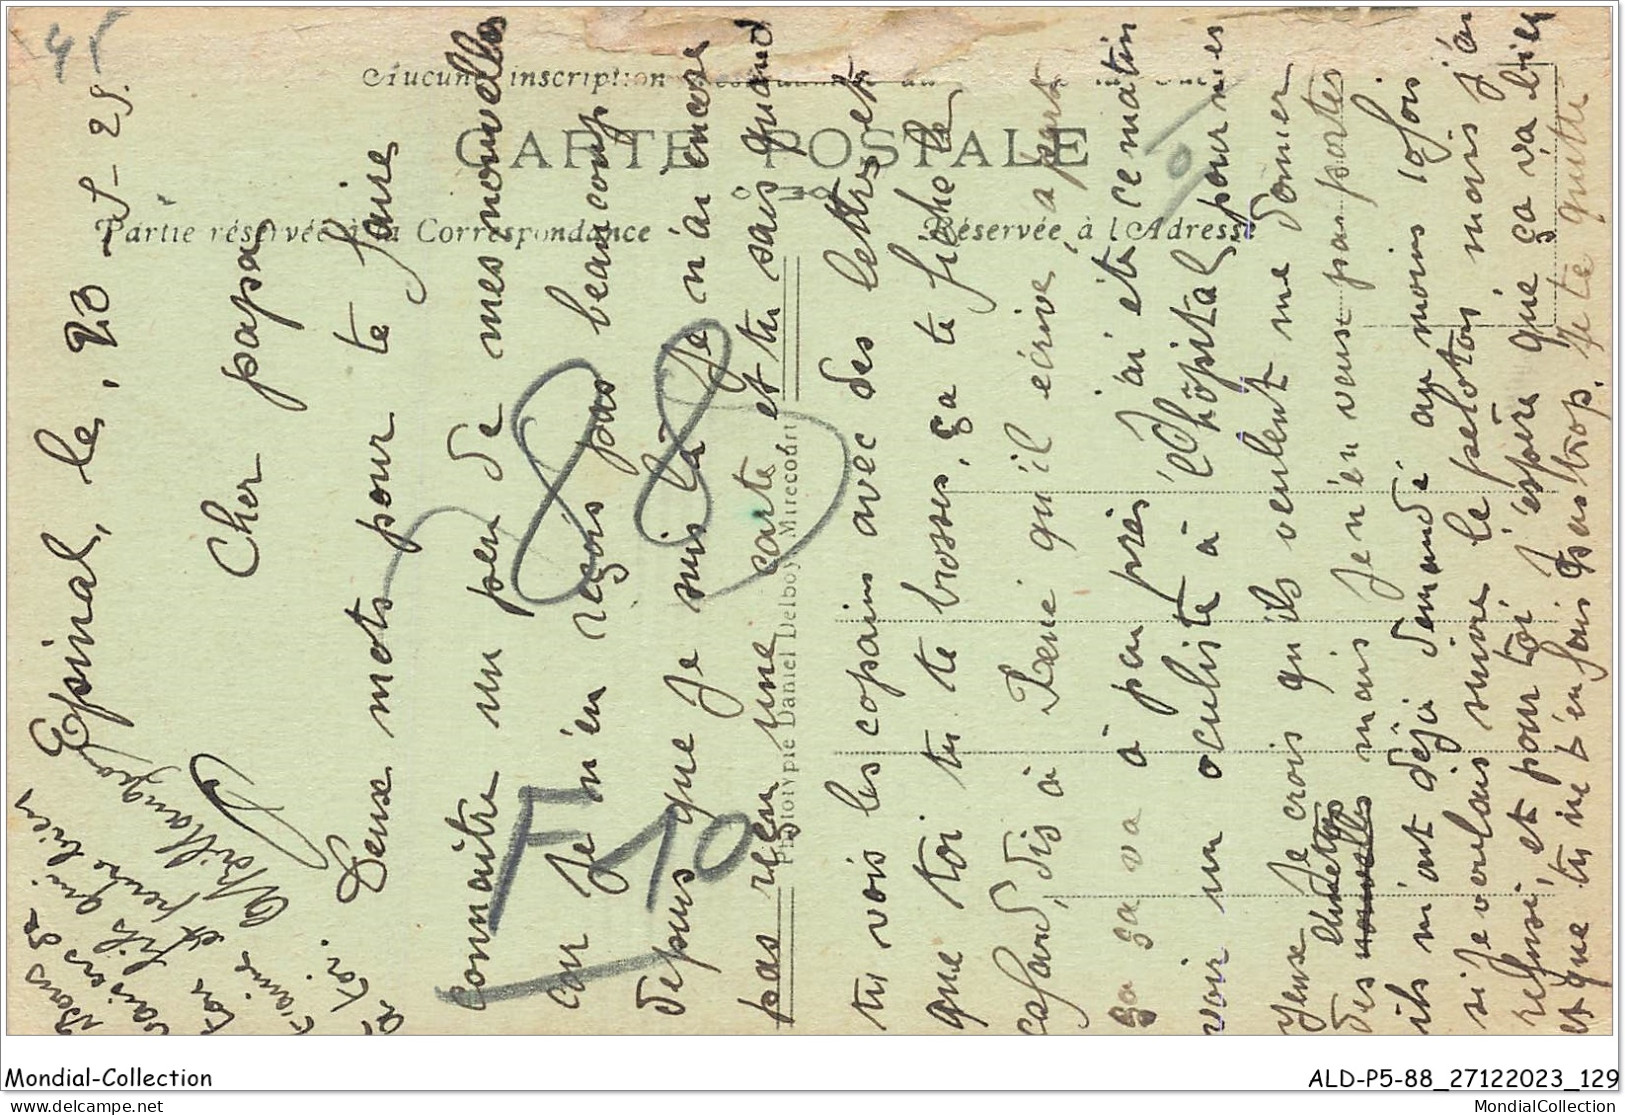 45
Aucune inscription
CARTE POSTALE
Partie réservée à la Correspondance
Réservée à l'Adresse
Phototypie Daniel Delboy Mirecourt
Epinal, le, 23 - 5 - 25.
Cher papa
Deux mots pour te faire
connaitre un peu de mes nouvelles
car je n'en reçois pas beaucoup
depuis que je suis là je n'ai encore
pas reçu une carte et tu sais quand
tu vois les copains avec des lettres et
que toi tu te brosses, ça te fiche le
cafard, dis à René qu'il écrive, à part
ça ça va à peu près j'ai été ce matin
voir un oculiste à l'hôpital pour mes
yeux je crois qu'ils veulent me donner
des lunettes mais je n'en veux pas portes
ils m'ont déjà demandé au moins 10 fois
si je voulais suivre le peloton mais j'ai
refusé, et pour toi j'espère que ça va bien
et que tu ne t'en fais pas trop. je te quitte
Bons
baisers
ton fils qui
t'aime et pense bien
à toi.
88
F 10
Mondial-Collection
ALD-P5-88_27122023_129
mondial-collection.delcampe.net
MondialCollection